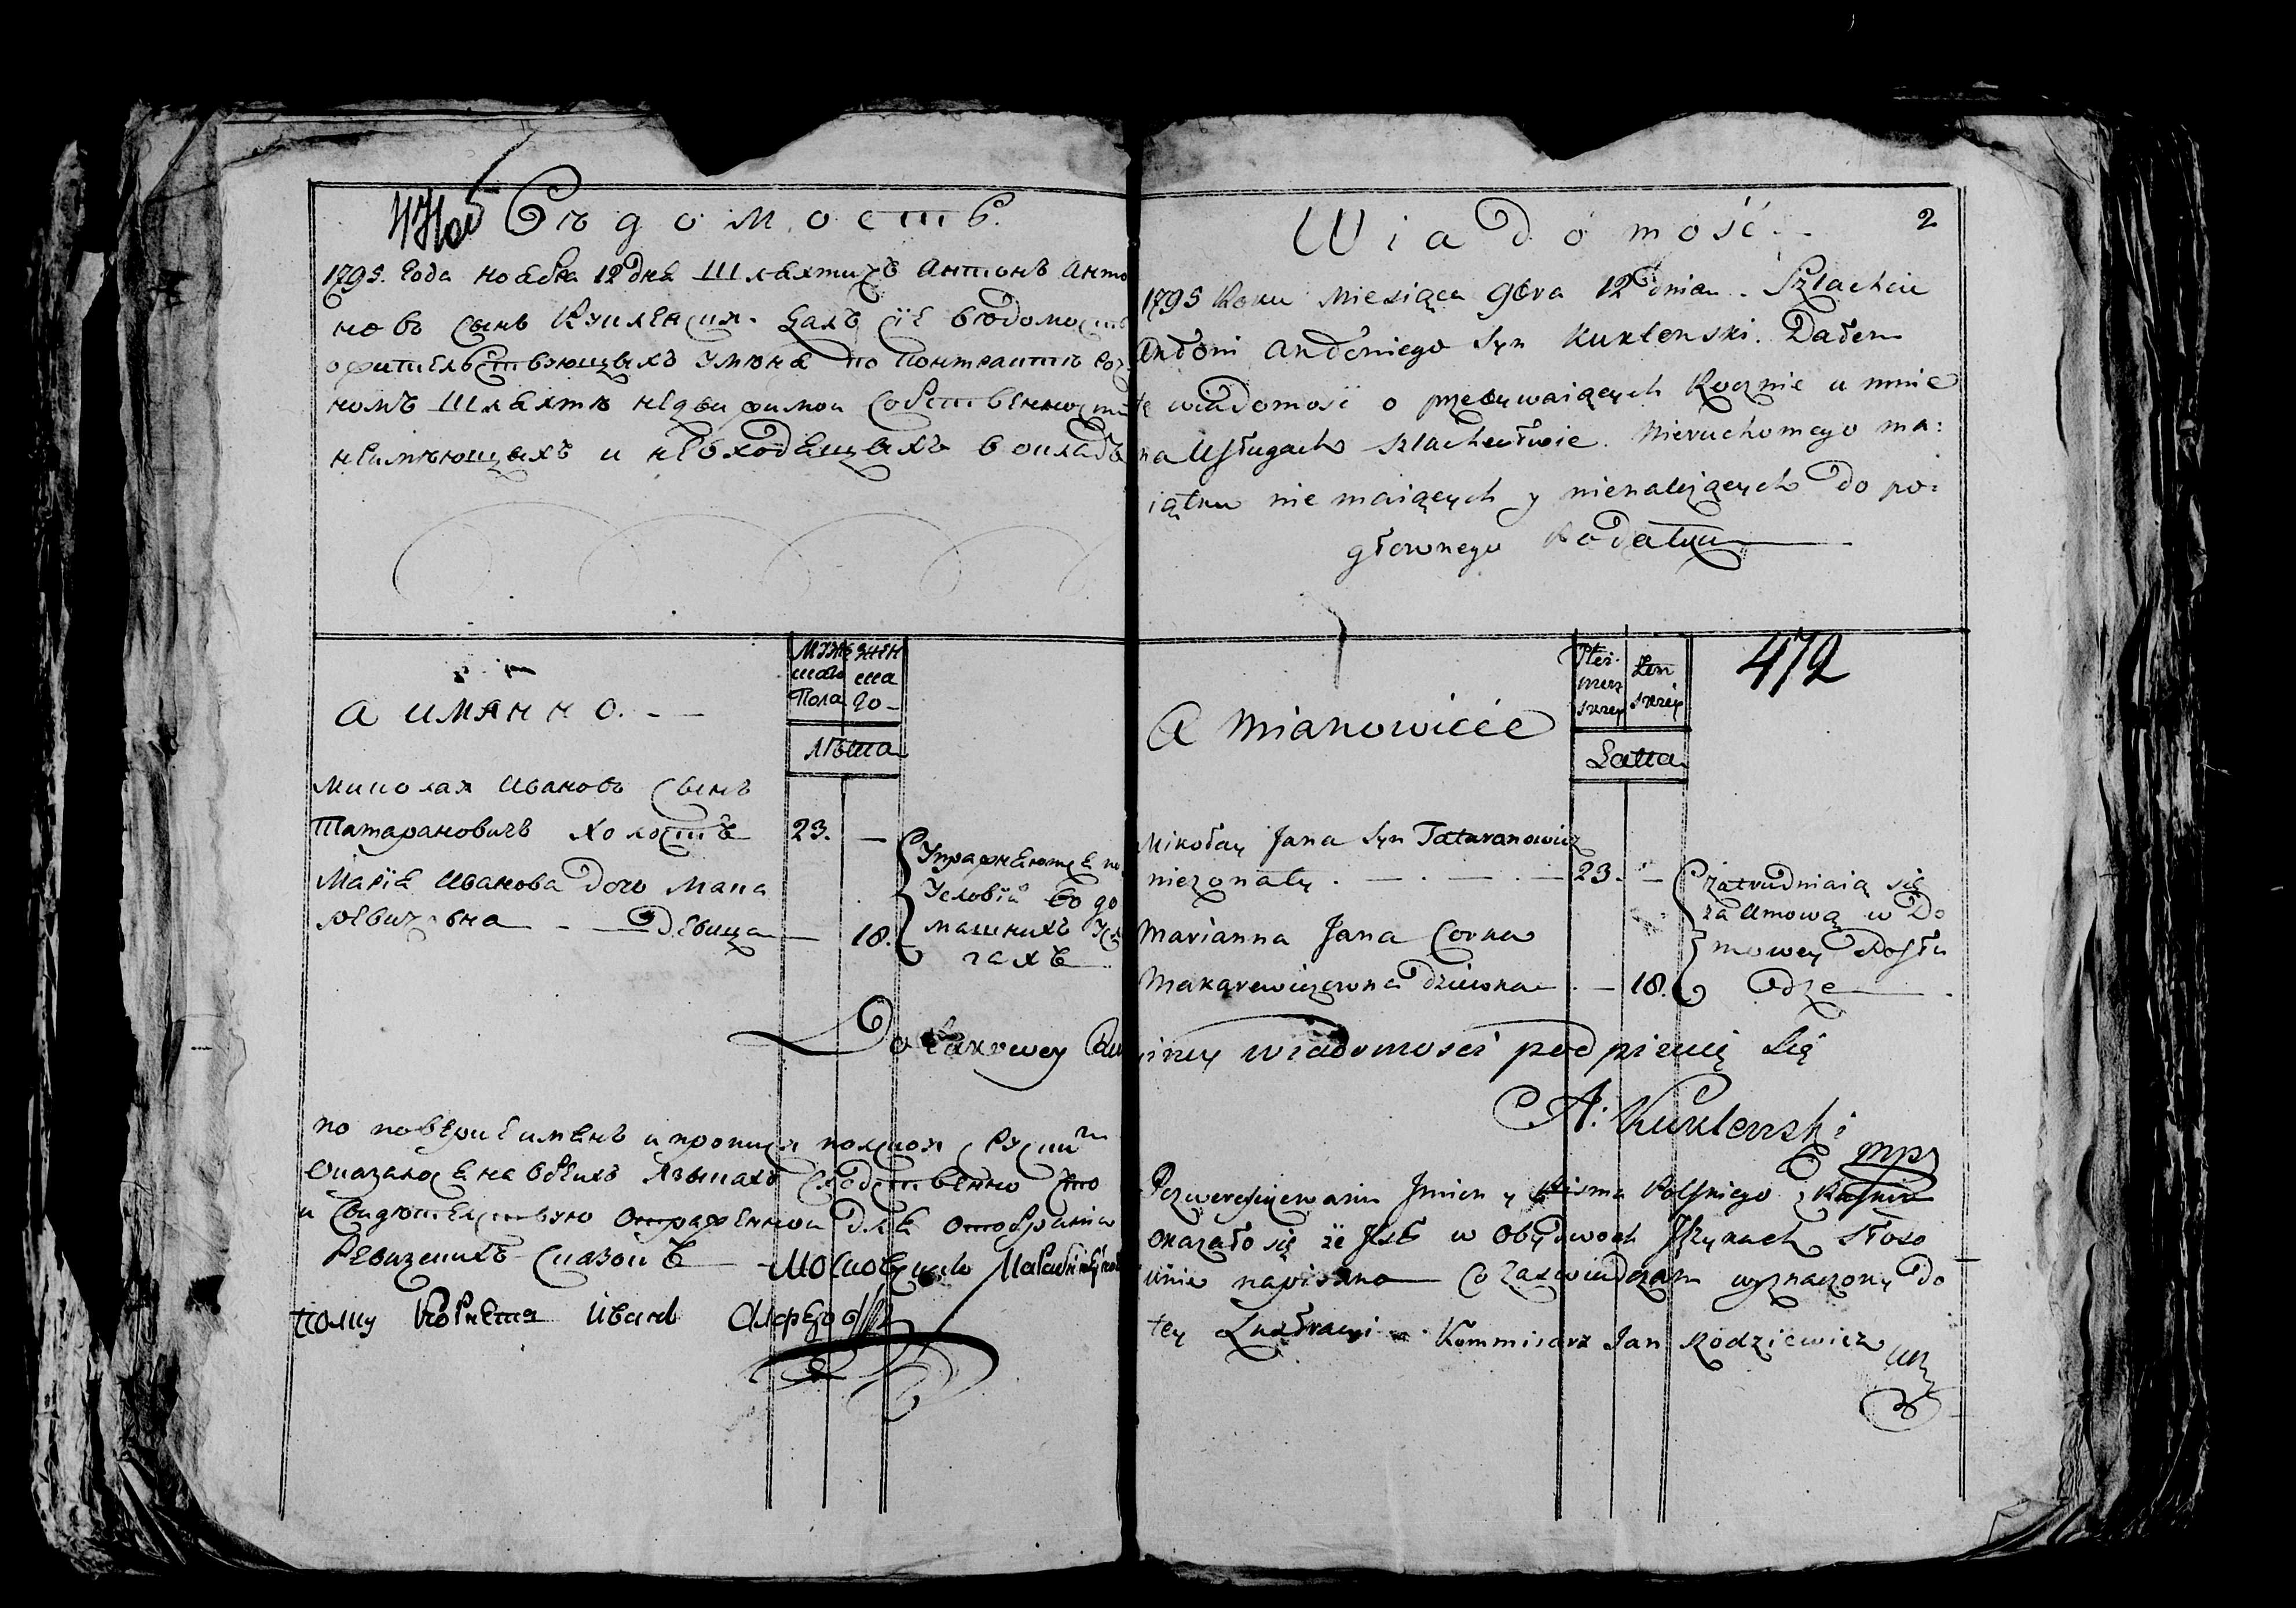 Вѣдомость.
1795. Года ноября 12 дня Шляхтичъ Антонъ Анто
новъ сынъ Кукленски. Далъ сїе вѣдомость
о жительствующыхъ у меня по контракту
номъ Шляхтѣ недвижимои собственности
неимѣющыхъ и невходящыхъ в окладъ
а имянно. - -
Муже
ска
Пола
жен
ска
го -
Лѣта
Миколай Ивановъ Сынъ
Татарановичъ холостъ 23. —
Марїя Иванова дочь Мака
ревичовна - — Девица — 18.
Упражняются по
Условїи во до
машнихъ Услу
гахъ
Do takowey
по поверке имянъ и прописи полской с Руским
Оказалось на обеихъ языкахъ сходственно что
и свидѣтельствую отряженнои для отобранїя
Ревизскихъ сказокъ — Московскаго
полку Корнетъ Иванъ
Wiadomość. - 2
1795 Roku Miesiąca 9bra 12 dnia. Szlachcic
Antoni Antoniego Syn Kuklenski. Dałem
te wiadomość o przebywaiących Rocznie u mnie
na Usługach szlachectwie. Nieruchomego ma:
iątku nie maiących y nienależących do po:
głownego Podatku —
472
A Mianowicie
Męż.
Zen
szczey
Latta
Mikołay Jana Syn Tataranowicz
niezonaty . — . — . — 23. —
Marianna Jana Corka
Makarewiczowna dziewka — . — 18.
zatrudniaią się
za Umową w Do
mowey Posłu
dze — .
iney wiadomosci podpisuię się
A: Kuklenski mpr
Pozweryfikowaniu Jmion y Pisma Polskiego z Ruskim
okazało się że Jest w Obydwoch Językach stoso
wnie napisano — Co Zaswiadczam wyznaczony do
tey Lustracyi — Kommisarz Jan Rodziewicz